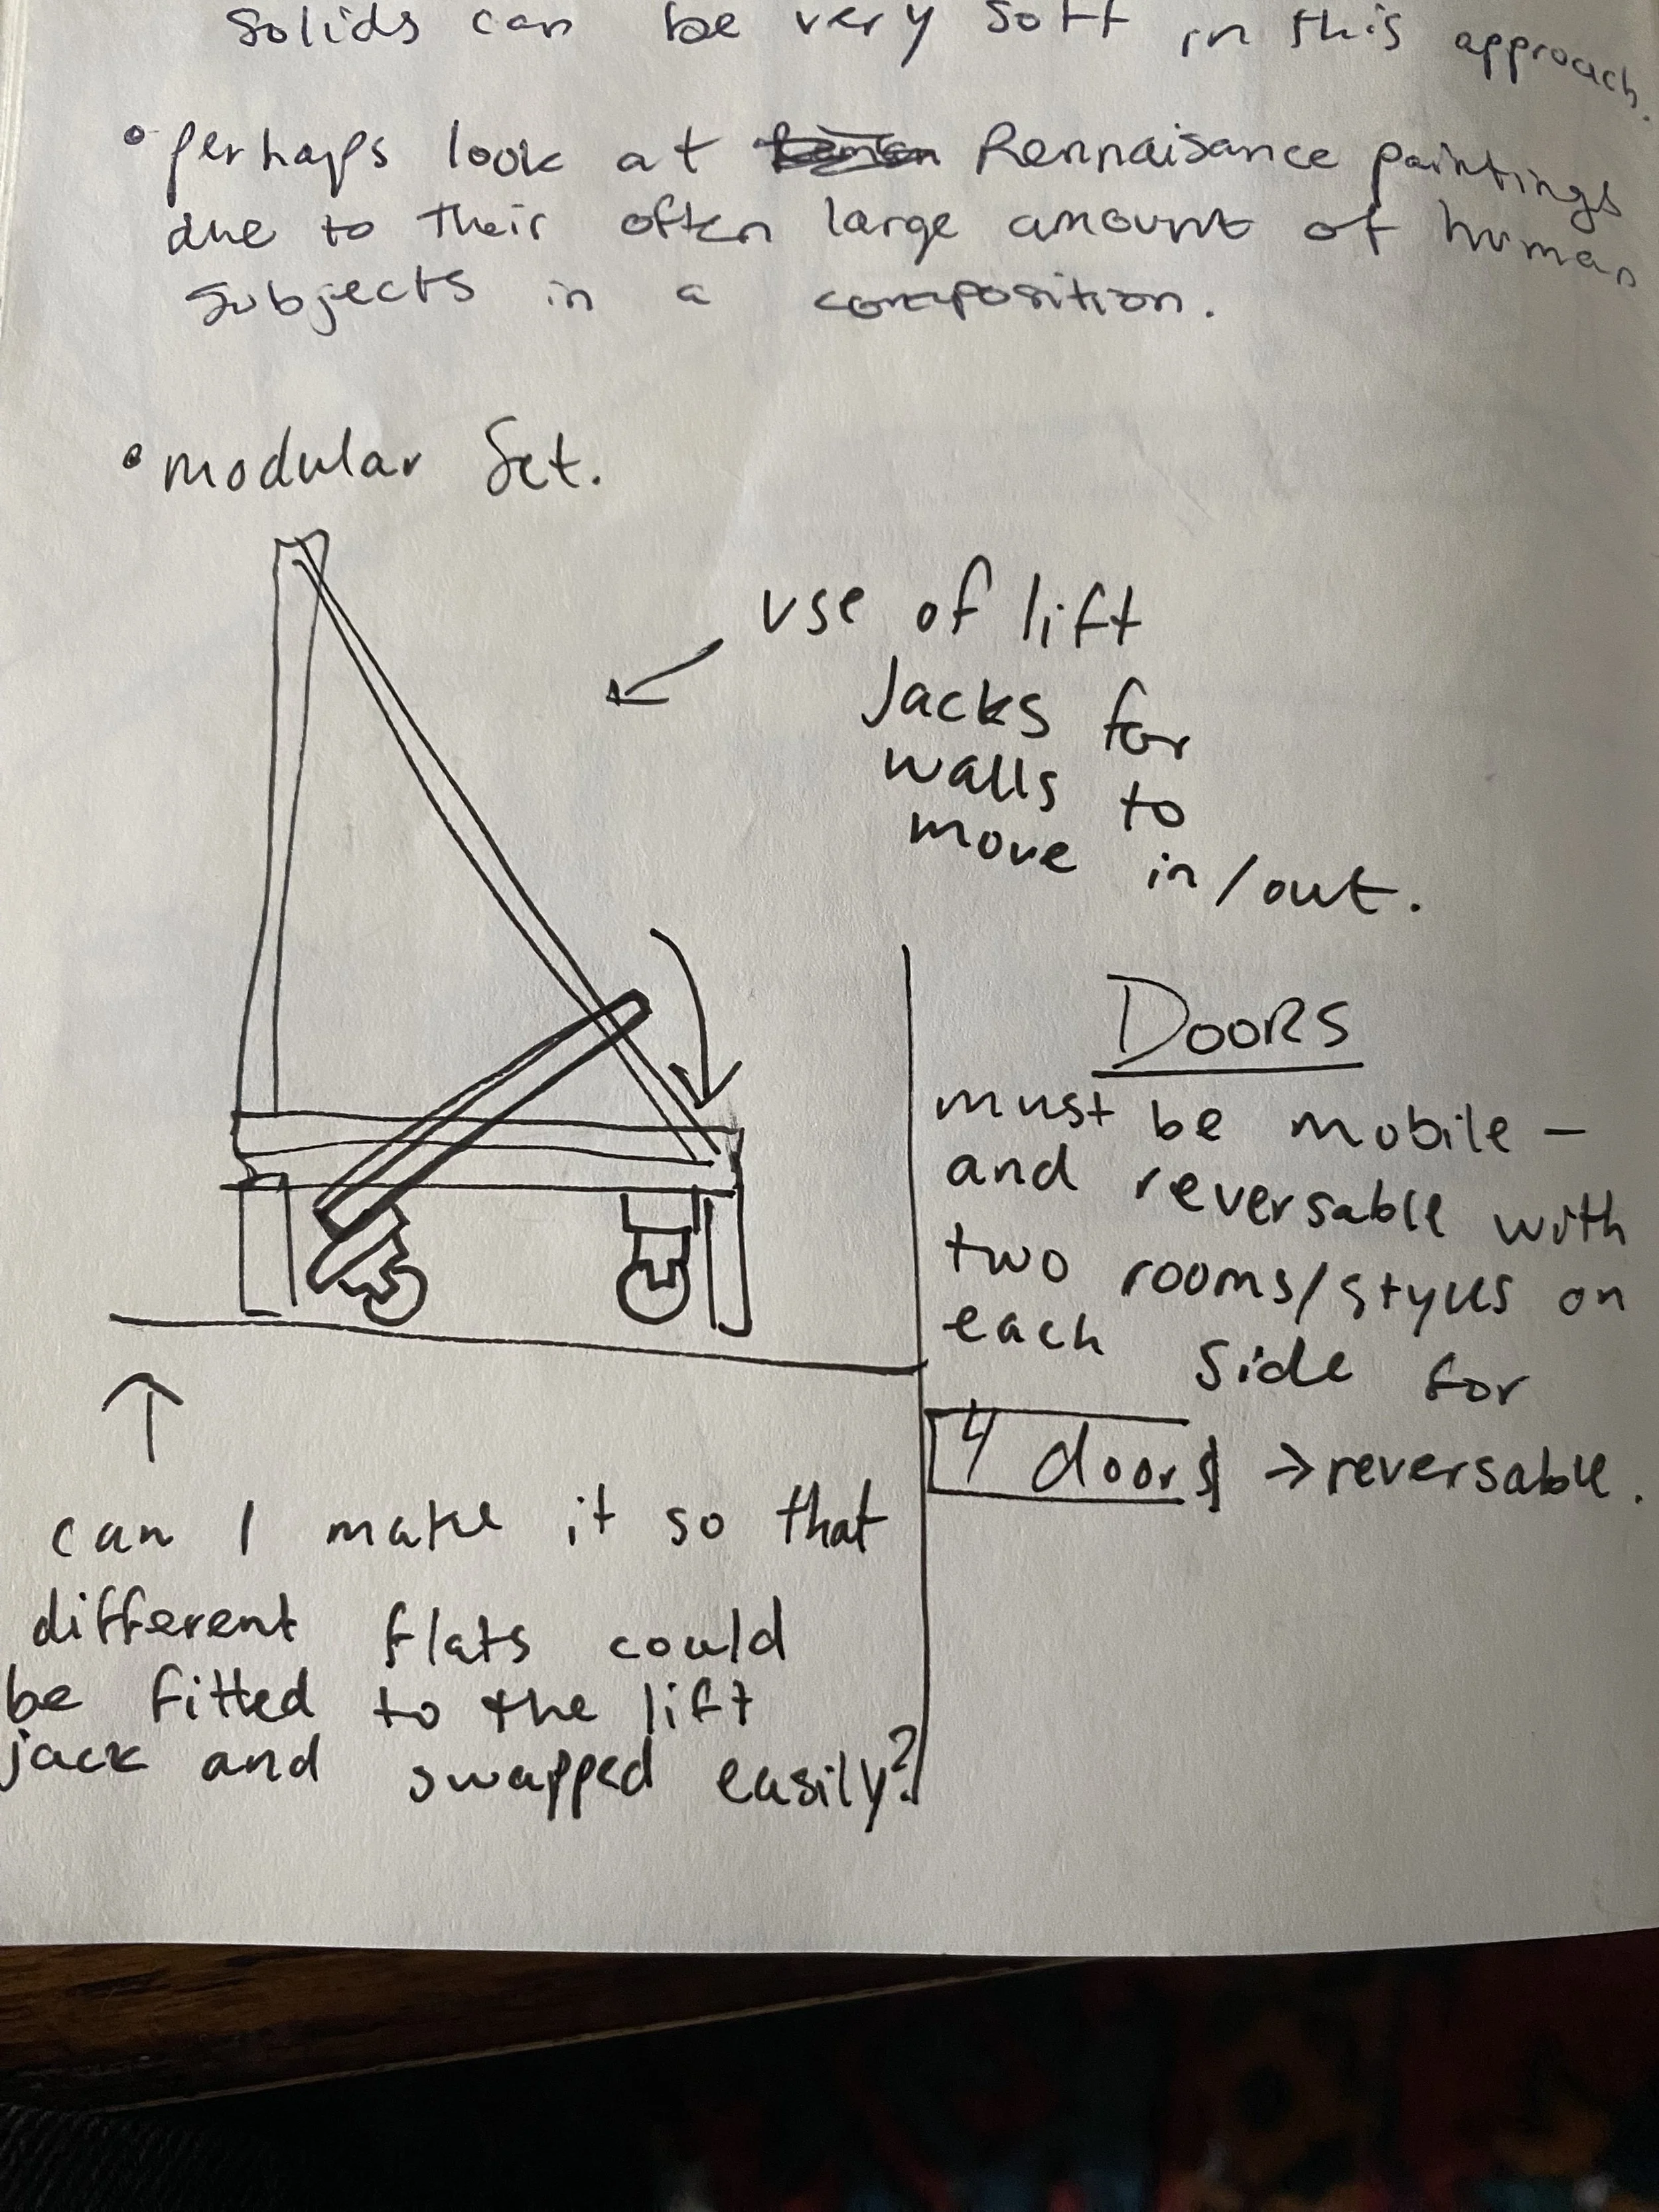 solids can be very soft in this approach.
• perhaps look at Rennaisance paintings
due to their often large amount of human
subjects in a composition.
• modular set.
use of lift
Jacks for
walls to
move in/out.
DOORS
must be mobile –
and reversable with
two rooms/styles on
each side for
4 doors → reversable.
can I make it so that
different flats could
be fitted to the lift
jack and swapped easily?